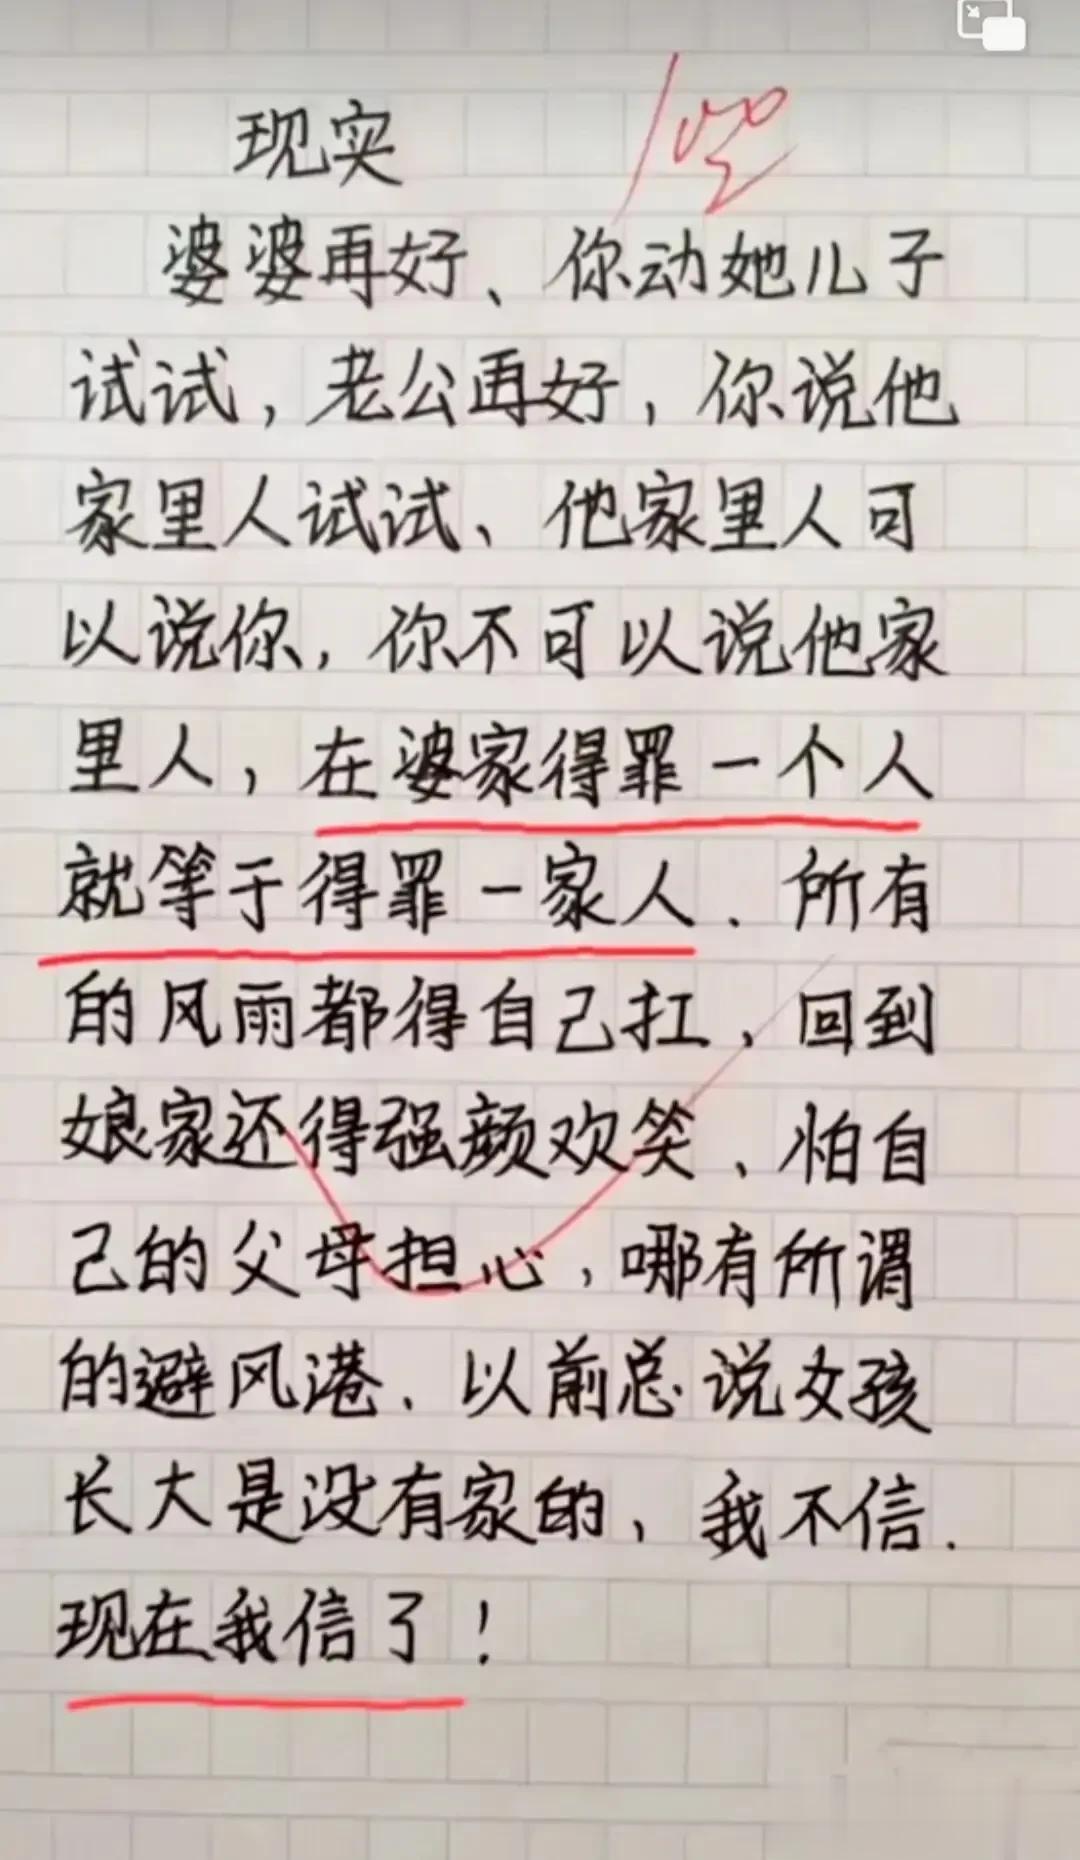 现实
100
婆婆再好、你动她儿子
试试，老公再好，你说他
家里人试试、他家里人可
以说你，你不可以说他家
里人，在婆家得罪一个人
就等于得罪一家人．所有
的风雨都得自己扛，回到
娘家还得强颜欢笑、怕自
己的父母担心，哪有所谓
的避风港、以前总说女孩
长大是没有家的，我不信．
现在我信了！